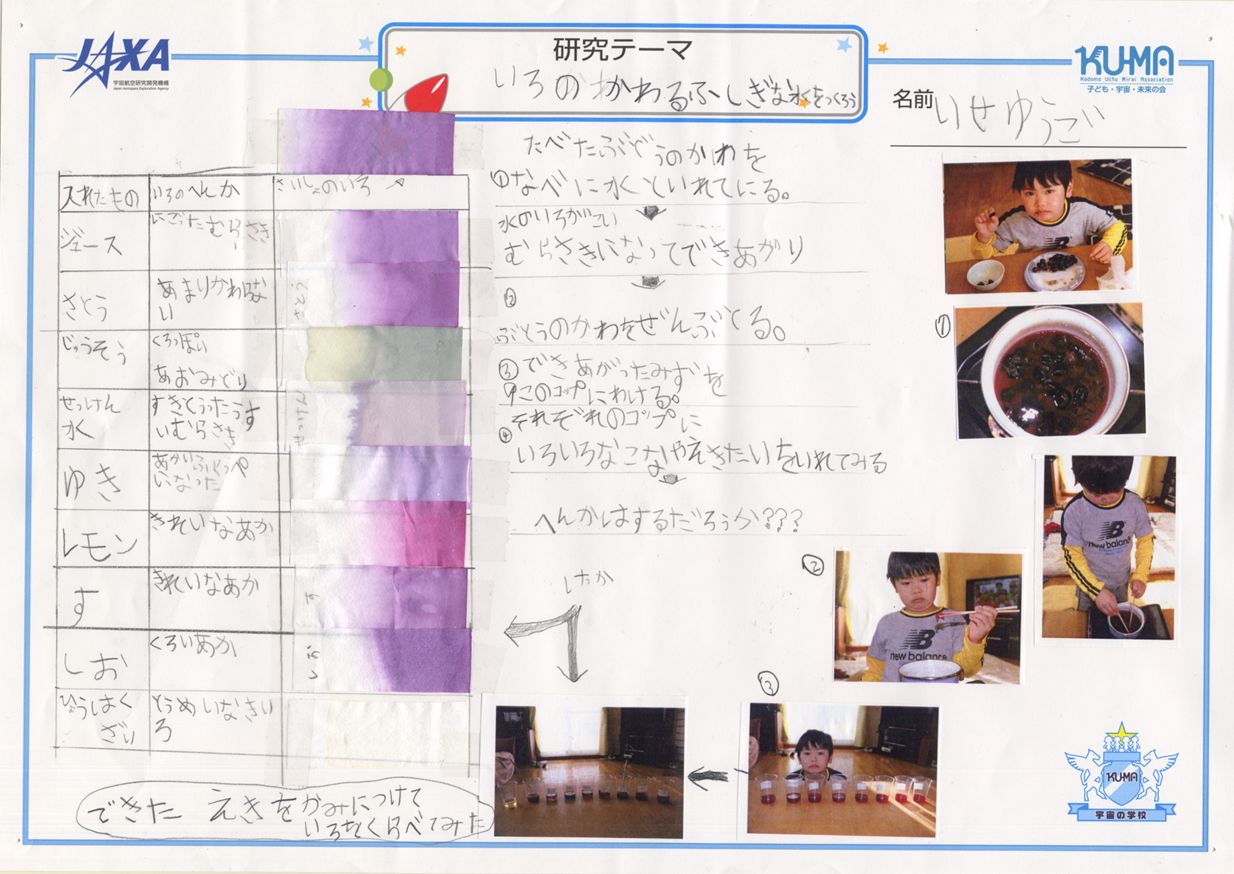 JAXA
宇宙航空研究開発機構
Japan Aerospace Exploration Agency
研究テーマ
いろのかわるふしぎな水をつくろう
KU-MA
Kodomo Uchu Mirai Association
子ども・宇宙・未来の会
名前
いせゆうごい
入れたもの
いろのへんか
さいしょのいろ
ジュース
にごったむらさき
さとう
あまりかわらな
い
さとう
じゅうそう
くろっぽい
あおみどり
せっけん
水
すきとうったうす
いむらさき
せっけん
ゆき
レモン
きれいなあか
す
きれいなあか
す
しお
くろいあか
しお
ひょうはく
ざい
とうめいなきい
ろ
できた えきをかみにつけて
いろをくらべてみた
たべたぶどうのかわを
①なべに水といれてにる。
水のいろがこい
むらさきになってできあがり
②
ぶどうのかわをぜんぶとる。
③できあがったみずを
9このコップにわける。
④それぞれのコップに
いろいろなこなやえきたいをいれてみる
へんかはするだろうか???
けっか
①
②
③
new balance
new balance
KU-MA
宇宙の学校